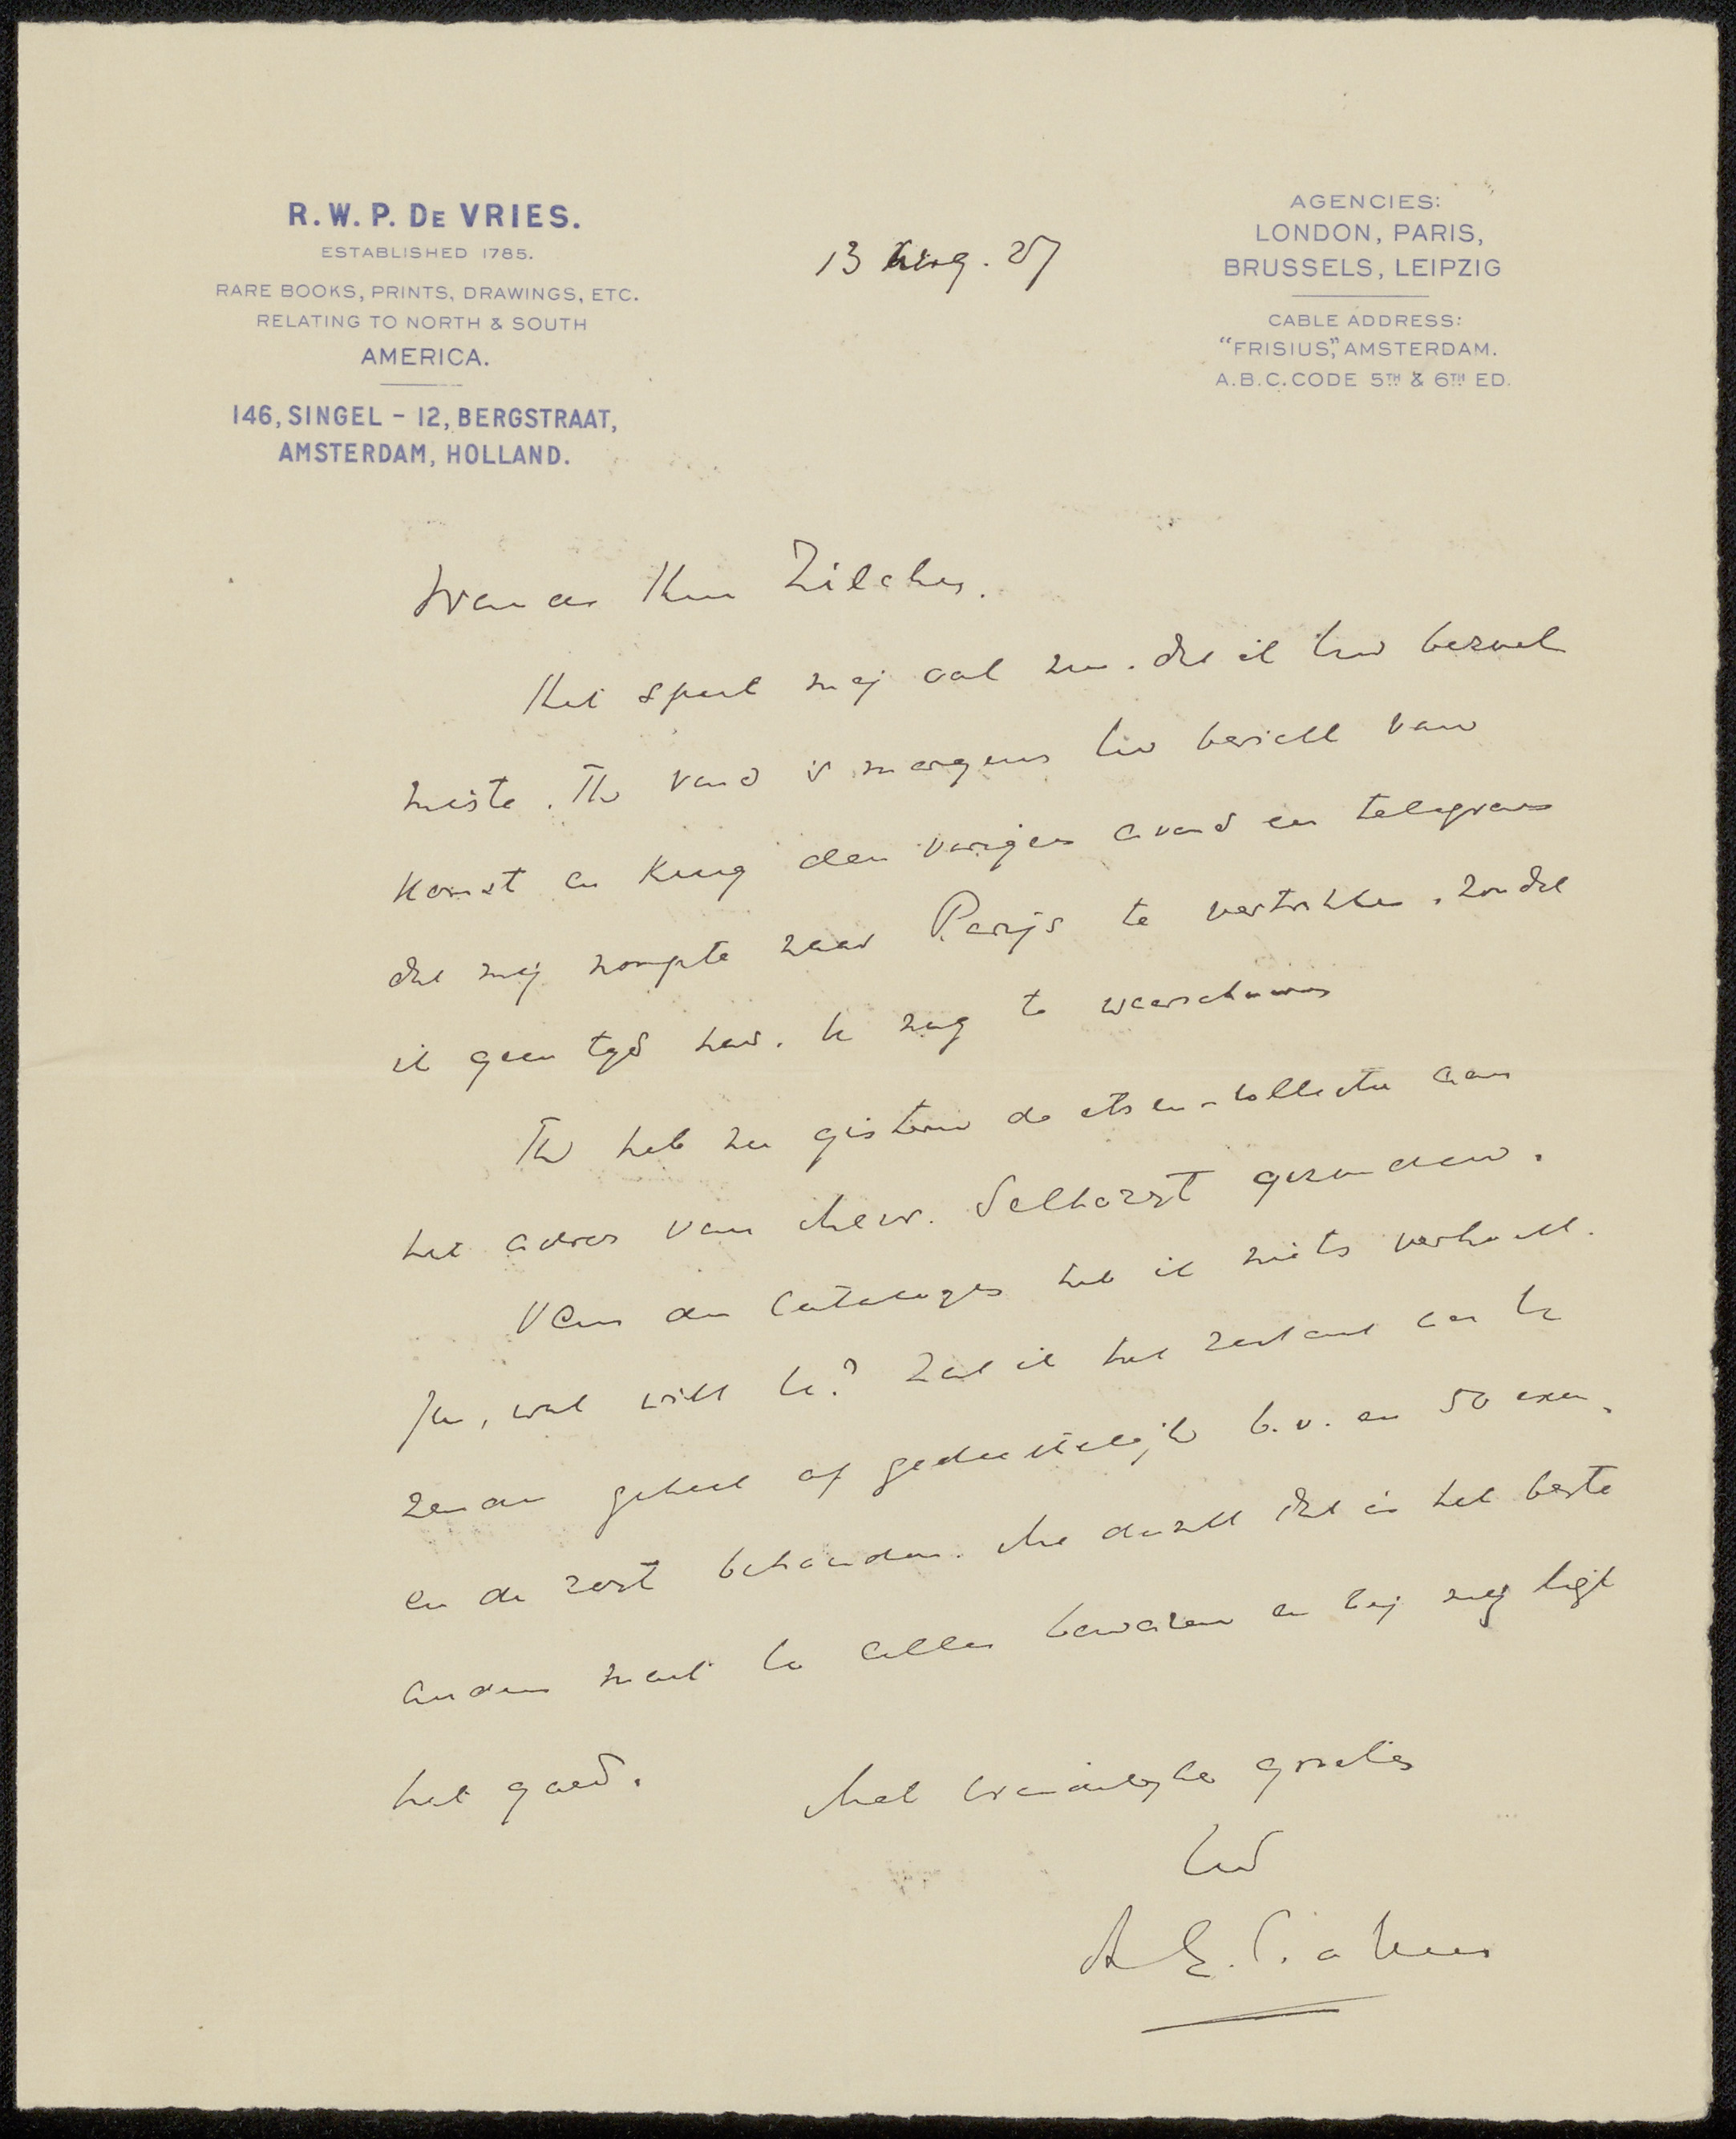 R. W. P. DE VRIES.
ESTABLISHED 1785.
RARE BOOKS, PRINTS, DRAWINGS, ETC.
RELATING TO NORTH & SOUTH
AMERICA.
146, SINGEL - 12, BERGSTRAAT,
AMSTERDAM, HOLLAND.
13 Aug. 27
AGENCIES:
LONDON, PARIS,
BRUSSELS, LEIPZIG
CABLE ADDRESS:
"FRISIUS", AMSTERDAM.
A.B.C. CODE 5TH & 6TH ED.
Waarde Heer Zilcken.
Het speet mij dat ik Uw bezoek
miste. Ik vond 's morgens Uw bericht van
komst en kreeg den vorigen avond een telegram
dat mij noopte naar Parijs te vertrekken, zoodat
ik geen tijd had U nog te waarschuwen
Ik heb nu gisteren de etsen-collectie aan
het adres van Mevr. gezonden.
Van den catalogus heb ik niets verkocht.
Ja, wat wilt U? Zal ik het restant aan U
zenden geheel of gedeeltelijk b.v. en 50 exem.
en de rest behouden. Me dunkt dat is het beste
anders moet U alles bewaren en bij mij ligt
het goed.
Met vriendelijke groeten
Uw